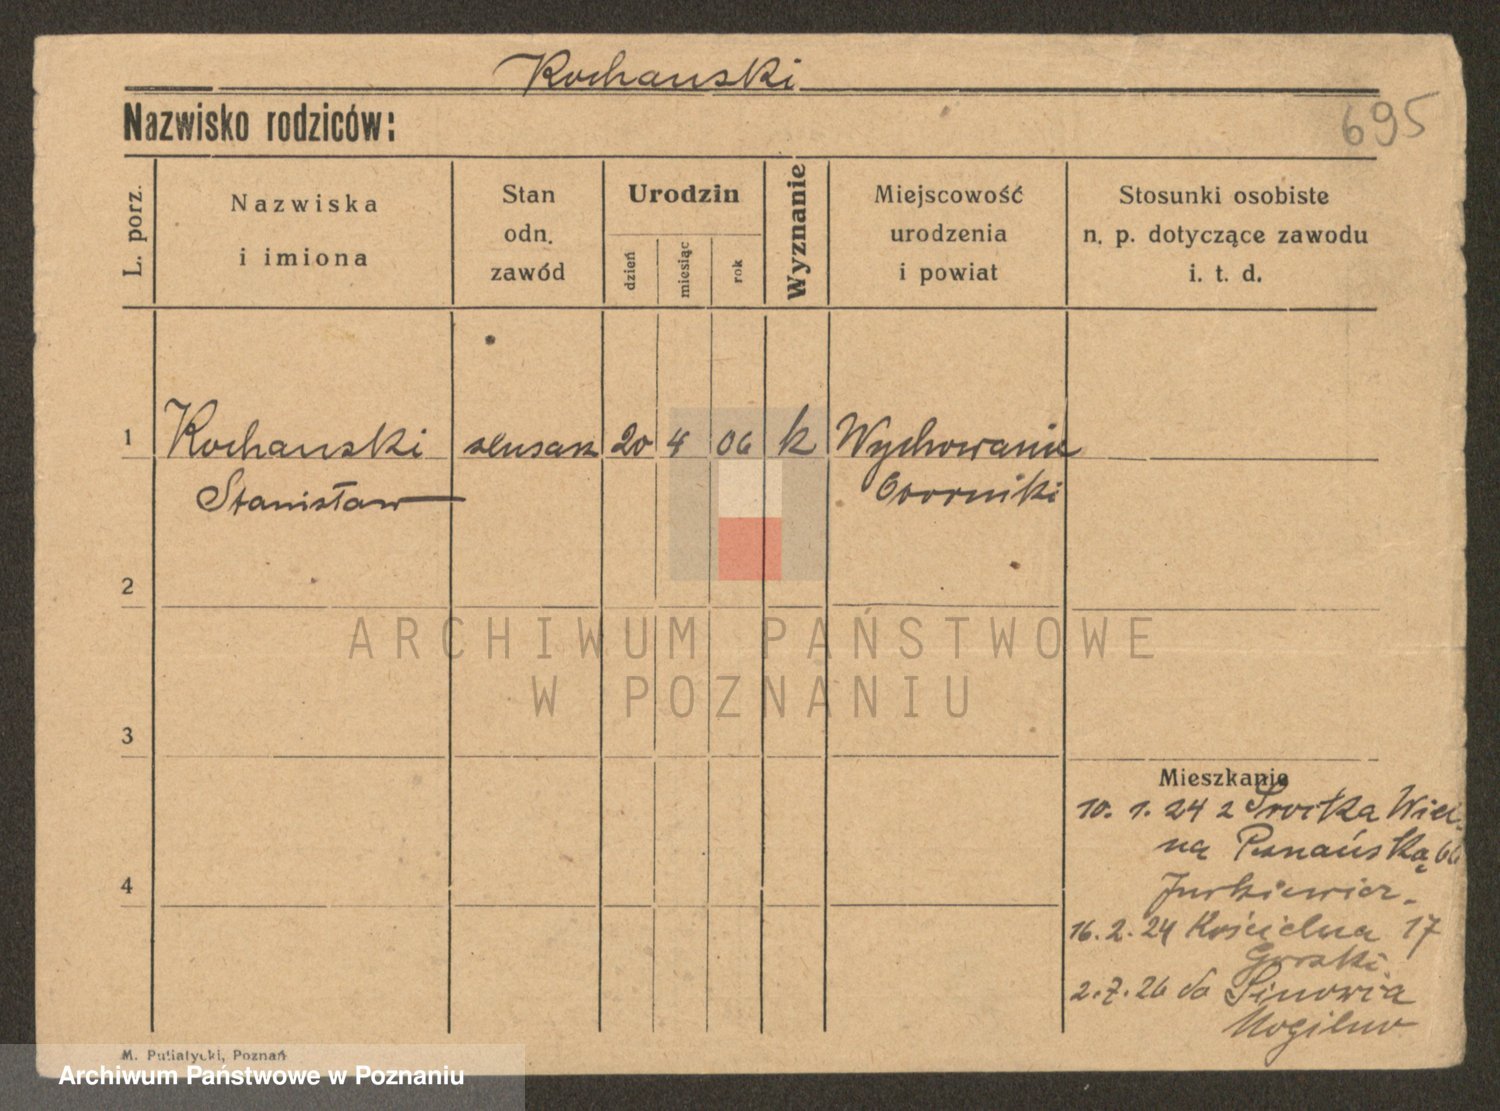 Kochanski
695
Nazwisko rodziców:
L. porz.
Nazwiska
i imiona
Stan
odn.
zawód
Urodzin
dzień
miesiąc
rok
Wyznanie
Miejscowość
urodzenia
i powiat
Stosunki osobiste
n. p. dotyczące zawodu
i. t. d.
1 Kochanski ślusarz 20 4 06 k Wychowanie
Stanisław
2
ARCHIWUM PAŃSTWOWE
W POZNANIU
3
Mieszkanie
10. 1. 24 z
na Poznańska 66
Jurkiewicz
4
16. 2. 24 Kościelna 17
Gorski
2. 7. 26 do
Mogilno
M. Putiatycki, Poznań
Archiwum Państwowe w Poznaniu